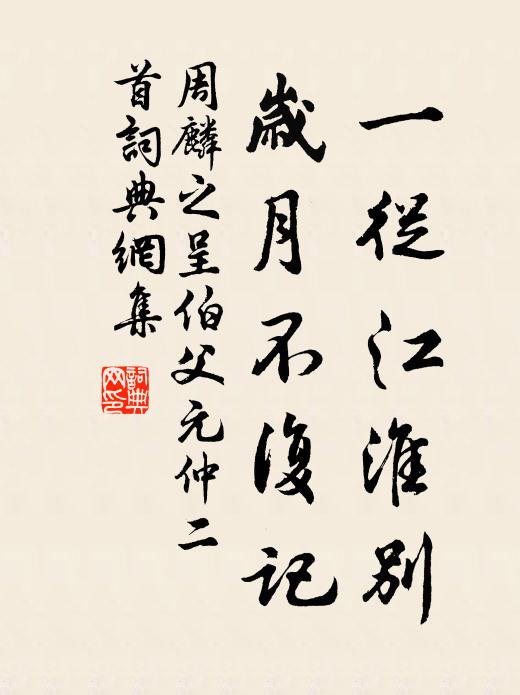 一從江淮別
歲月不復記
周麟之呈伯父元仲二
首詞典網集
詞典
网印